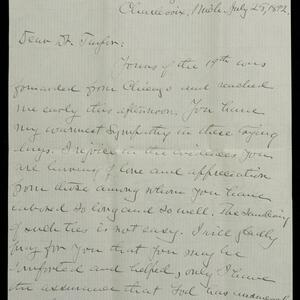 Charlevoix, Mich. July 25, 1892.
Dear Dr. Taylor:
Yours of the 19th was
forwarded from Chicago and reached
me early this afternoon. You have
my warmest sympathy in these trying
days. I rejoice in the evidences you
are having of love and appreciation
from those among whom you have
labored so long and so well. The sundering
of such ties is not easy. I will gladly
pray for you that you may be
comforted and helped, only I have
the assurance that God has